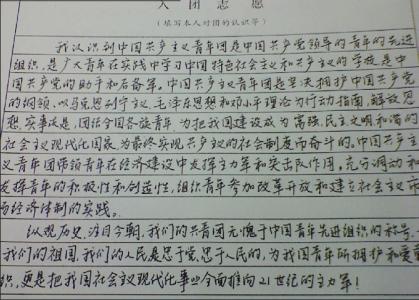 入团志愿
(填写本人对团的认识等)
我认识到中国共产主义青年团是中国共产党领导的青年的先进
组织,是广大青年在实践中学习中国特色社会主义和共产主义的学校,是中
国共产党的助手和后备军。中国共产主义青年团坚决拥护中国共产党
的纲领,以马克思列宁主义、毛泽东思想和邓小平理论为行动指南,解放思
想,实事求是,团结全国各族青年,为把我国建设成为富强民主文明和谐的
社会主义现代化国家,为最终实现共产主义的社会制度而奋斗的。中国共产主
义青年团带领青年在经济建设中发挥主力军和突击队作用,充分调动和
发挥青年的积极性和创造性,组织青年参加改革开放和建立社会主义市
场经济体制的实践。
纵观历史,注目今朝,我们的共青团无愧于中国青年先进组织的称号,
我们的祖国,我们的人民是忠于党,忠于人民的,为我国青年所拥护和爱
织,更是把我国社会主义现代化事业全面推向21世纪的主力军!